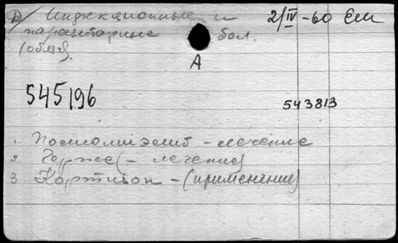 D/ Инфекционные и 2/IV-60 Ем
паразитарные бол.
(общ).
A
545196 543813
1. Полиомиэлит - лечение
2. Герпес (- лечение)
3. Кортизон - (применение)